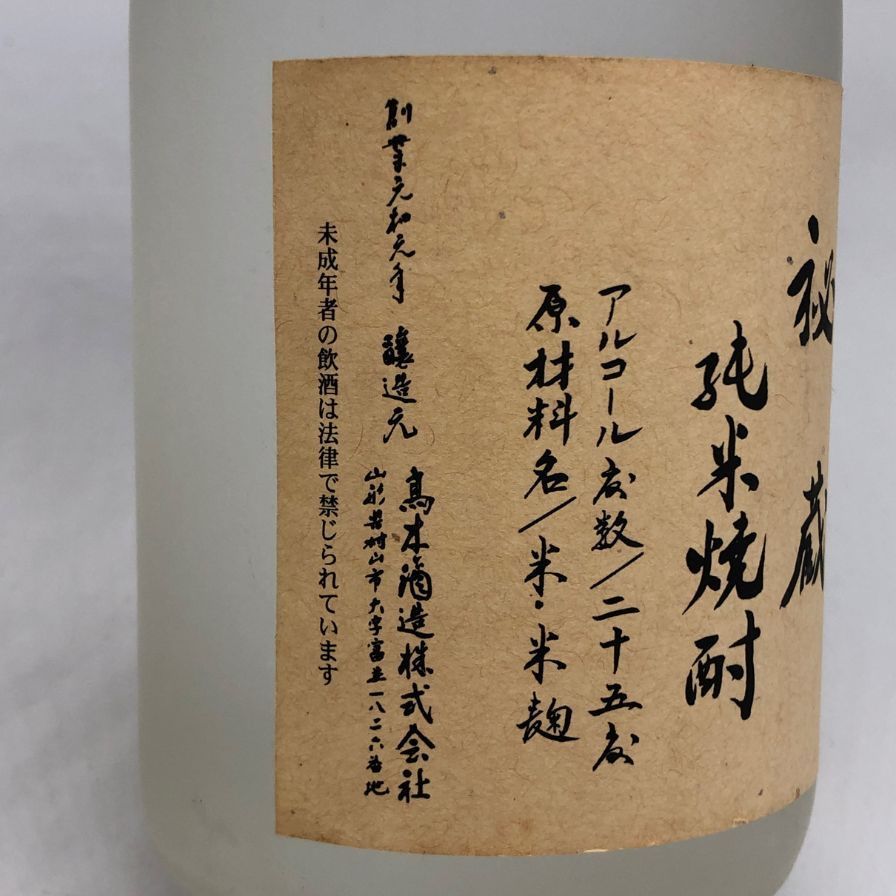 秘蔵
純米焼酎
アルコール度数/二十五度
原材料名/米・米麹
創業元和元年 醸造元 高木酒造株式会社
山形県村山市大字富並一八二六番地
未成年者の飲酒は法律で禁じられています